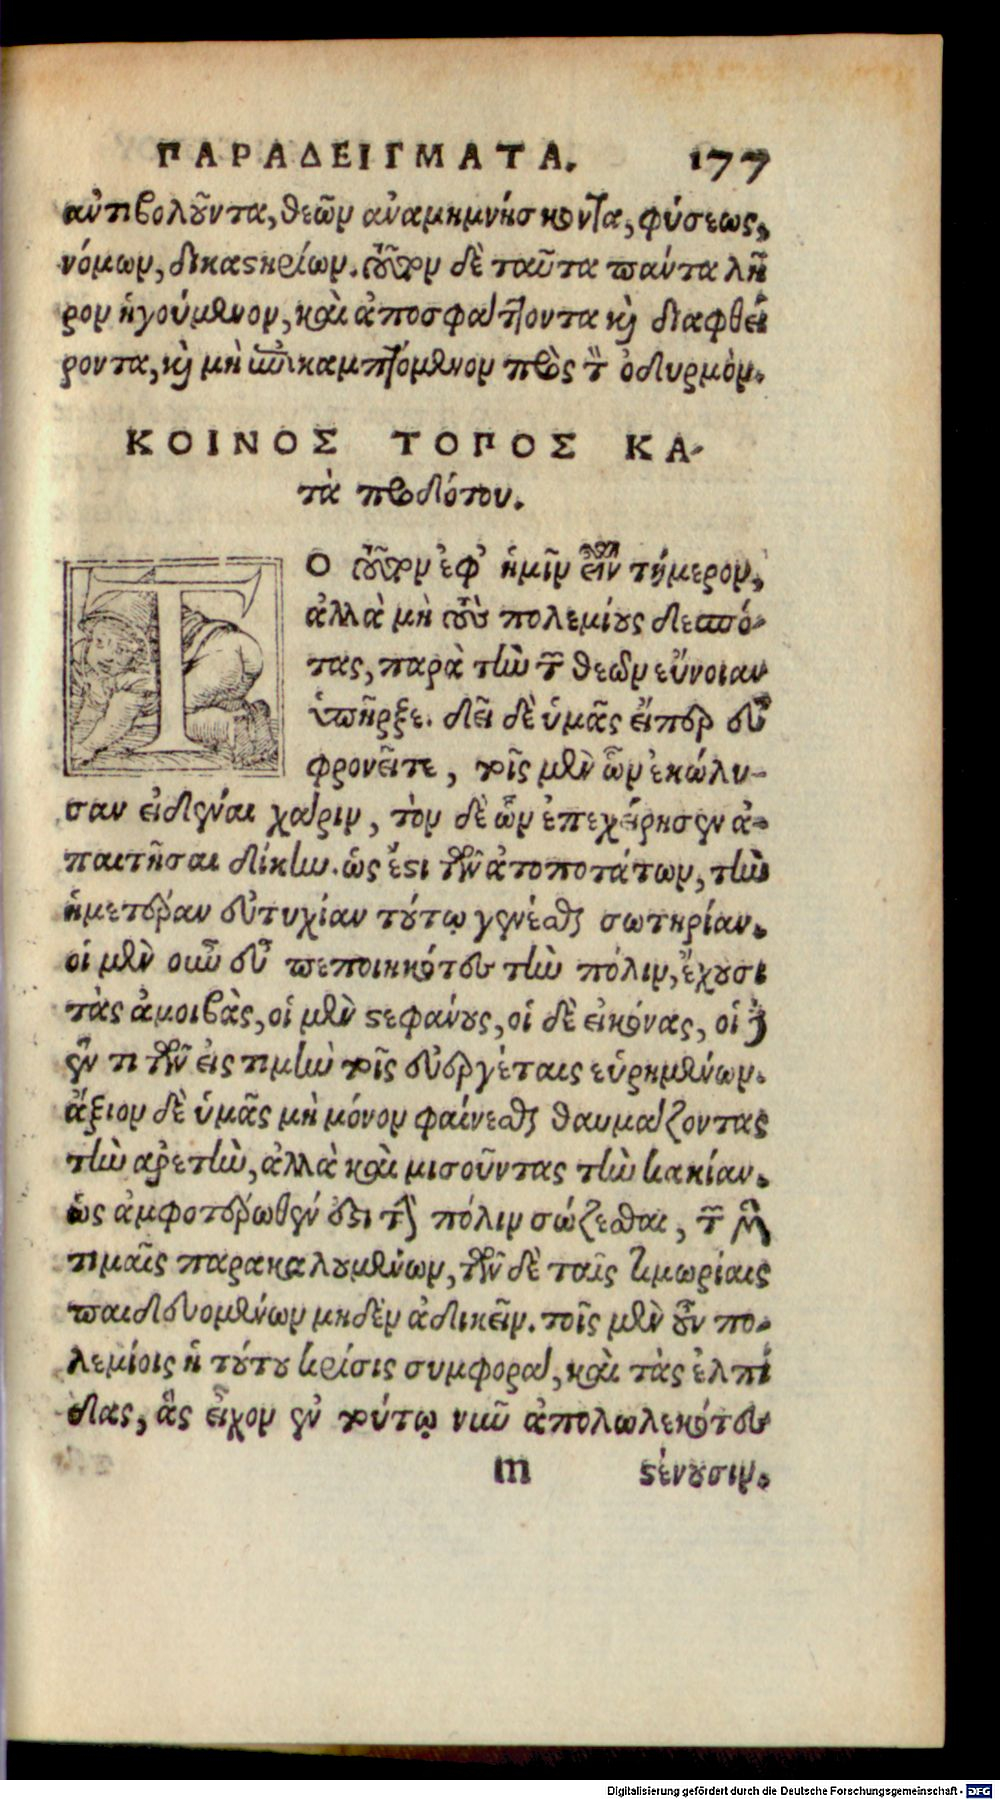 ΠΑΡΑΔΕΙΓΜΑΤΑ. 177
ἀντιβολοῦντα, θεῶν ἀναμιμνήσκοντα, φύσεως,
νόμων, δικαστηρίων. τοῦτον δὲ ταῦτα πάντα λῆ
ρον ἡγούμενον, καὶ ἀποσφάττοντα καὶ διαφθεί
ροντα, καὶ μὴ ἐπικαμπτόμενον πρὸς τὸν ὀδυρμὸν.
ΚΟΙΝΟΣ ΤΟΠΟΣ ΚΑ-
τὰ προδότου.
ΤΟ τοῦτον ἐφ' ἡμῖν εἶναι τήμερον,
ἀλλὰ μὴ τοὺς πολεμίους δεσπό-
τας, παρὰ τὴν τῶν θεῶν εὔνοιαν
ὑπῆρξε. δεῖ δὲ ὑμᾶς εἴπερ εὖ
φρονεῖτε, τοῖς μὲν ὧν ἐκώλυ-
σαν εἰδέναι χάριν, τὸν δὲ ὧν ἐπεχείρησεν ἀ-
παιτῆσαι δίκην. ὡς ἔστι τῶν ἀτοποτάτων, τὴν
ἡμετέραν εὐτυχίαν τούτῳ γενέσθαι σωτηρίαν.
οἱ μὲν οὖν εὖ πεποιηκότες τὴν πόλιν, ἔχουσι
τὰς ἀμοιβὰς, οἱ μὲν στεφάνους, οἱ δὲ εἰκόνας, οἱ δὲ
ἕν τι τῶν εἰς τιμὴν τοῖς εὐεργέταις εὑρημένων.
ἄξιον δὲ ὑμᾶς μὴ μόνον φαίνεσθαι θαυμάζοντας
τὴν ἀρετὴν, ἀλλὰ καὶ μισοῦντας τὴν κακίαν.
ὡς ἀμφοτέρωθεν ἔστι τὴν πόλιν σώζεσθαι, τῶν μὲν
τιμαῖς παρακαλουμένων, τῶν δὲ ταῖς τιμωρίαις
παιδευομένων μηδὲν ἀδικεῖν. τοῖς μὲν οὖν πο-
λεμίοις ἡ τούτου κρίσις συμφορά, καὶ τὰς ἐλπί
δας, ἃς εἶχον ἐν τούτῳ νῦν ἀπολωλεκότες
m στένουσιν.
Digitalisierung gefördert durch die Deutsche Forschungsgemeinschaft - DFG